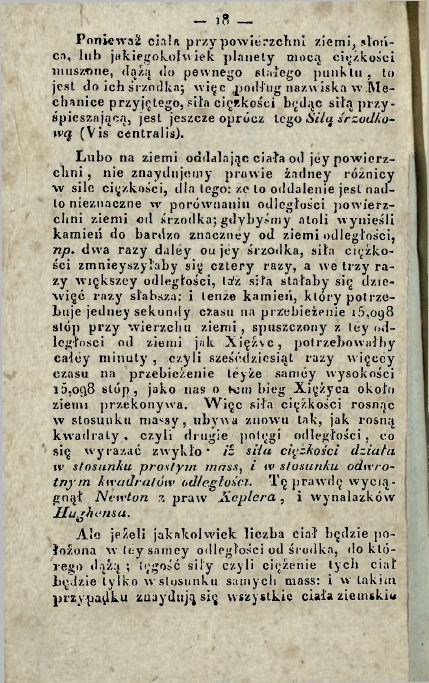 — 18 —
Ponieważ ciała przy powierzchni ziemi, słoń-
ca, lub jakiegokolwiek planety mocą ciężkości
muszone, dążą do pewnego stałego punktu, to
jest do ich śrzodka; więc podług nazwiska w Me-
chanice przyjętego, siła ciężkości będąc siłą przy-
śpieszającą, jest jeszcze oprócz tego Siłą śrzodko-
wą (Vis centralis).
Lubo na ziemi oddalając ciała od jéy powierz-
chni, nie znaydujemy prawie żadney różnicy
w sile ciężkości, dla tego: że to oddalenie jest nad-
to nieznaczne w porównaniu odległości powierz-
chni ziemi od śrzodka; gdybyśmy atoli wynieśli
kamień do bardzo znaczney od ziemi odległości,
np. dwa razy daléy od jéy śrzodka, siła ciężko-
ści zmnieyszyłaby się cztery razy, a we trzy ra-
zy większey odległości, taż siła stałaby się dzie-
więć razy słabsza: i tenże kamień, który potrze-
buje jedney sekundy czasu na przebieżenie 15,098
stóp przy wierzchu ziemi, spuszczony z téy od-
ległości od ziemi jak Xiężyc, potrzebowałby
całéy minuty, czyli sześćdziesiąt razy więcéy
czasu na przebieżenie téyże saméy wysokości
15,098 stóp, jako nas o tem bieg Xiężyca około
ziemi przekonywa. Więc siła ciężkości rosnąc
w stosunku massy, ubywa znowu tak, jak rosną
kwadraty, czyli drugie potęgi odległości, co
się wyrażać zwykło: iż siła ciężkości działa
w stosunku prostym mass, i w stosunku odwro-
tnym kwadratów odległości. Tę prawdę wycią-
gnął Newton z praw Keplera, i wynalazków
Hughensa.
Ale jeżeli jakakolwiek liczba ciał będzie po-
łożona w téy samey odległości od środka, do któ-
rego dążą; tęgość siły czyli ciężenie tych ciał
będzie tylko w stosunku samych mass: i w takim
przypadku znaydują się wszystkie ciała ziemskie